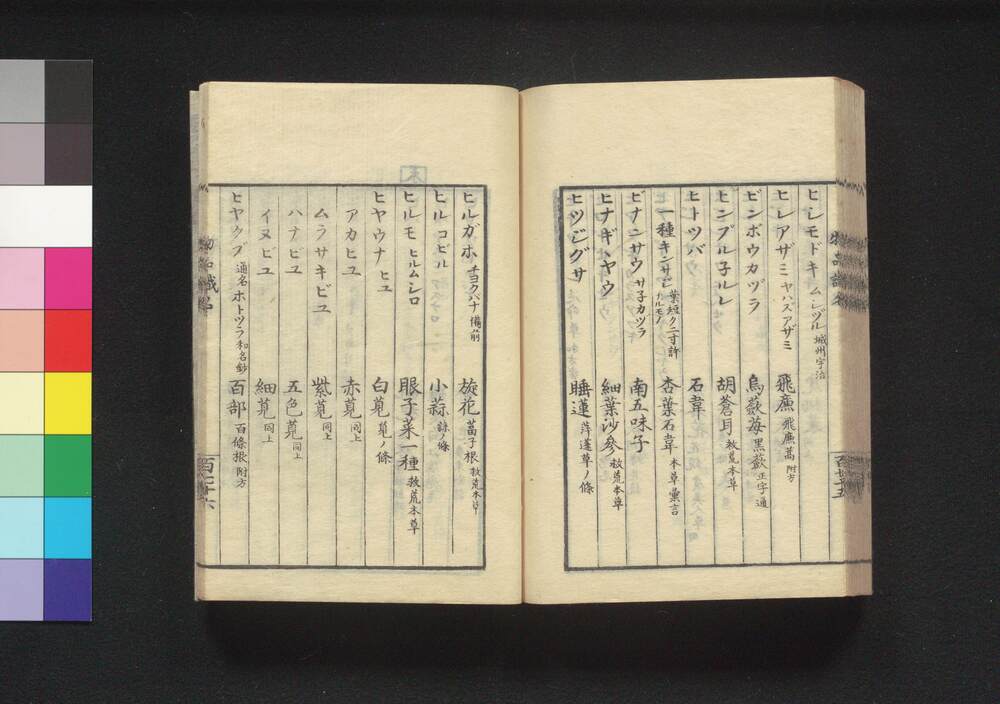 ヒレモドキ ムレヅル 城州宇治
ヒレアザミ ヤハズアザミ 飛廉 飛廉蒿 附方
ビンボウカヅラ 烏蘞苺 黒蘞 正字通
ヒンブル子ルレ 胡蒼耳 救荒本草
ヒトツバ 石韋
一種 キンサジ カルモノ 葉短ク二寸許 杏葉石韋 本草彙言
ビナニサウ サ子カヅラ 南五味子
ヒナギヽヤウ 細葉沙參 救荒本草
ヒツジグサ 睡蓮 萍蓬草ノ條
物品識名
百七十五
ヒルガホ チヨクバナ 備前 旋花 葍子根 救荒本草
ヒルコビル 小蒜 蒜ノ條
ヒルモ ヒルムシロ 眼子菜一種 救荒本草
ヒヤウナ ヒユ 白莧 莧ノ條
アカヒユ 赤莧 同上
ムラサキビユ 紫莧 同上
ハナビユ 五色莧 同上
イヌビユ 細莧 同上
ヒヤクブ 通名 ホトツラ 和名鈔 百部 百條根 附方
物品識名
百七十六